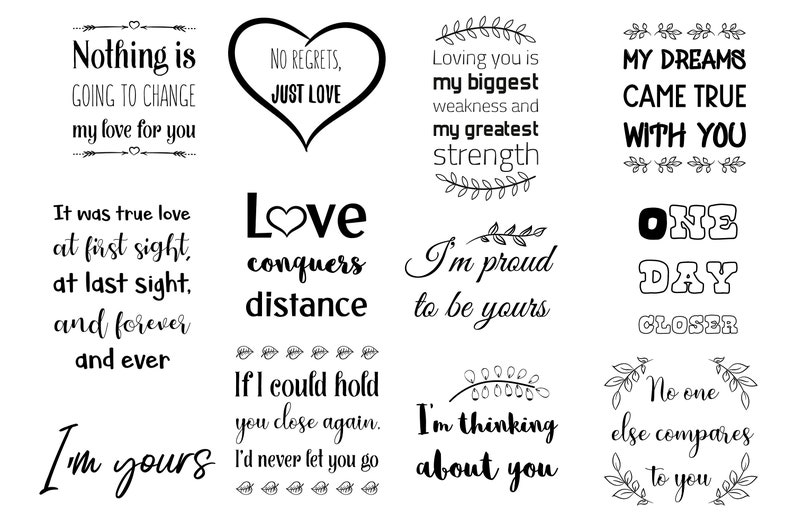 Nothing is
GOING TO CHANGE
my love for you
NO REGRETS,
JUST LOVE
Loving you is
my biggest
weakness and
my greatest
strength
MY DREAMS
CAME TRUE
WITH YOU
It was true love
at first sight,
at last sight,
and forever
and ever
Love
conquers
distance
I'm proud
to be yours
ONE
DAY
CLOSER
I'm yours
If I could hold
you close again.
I'd never let you go
I'm thinking
about you
No one
else compares
to you